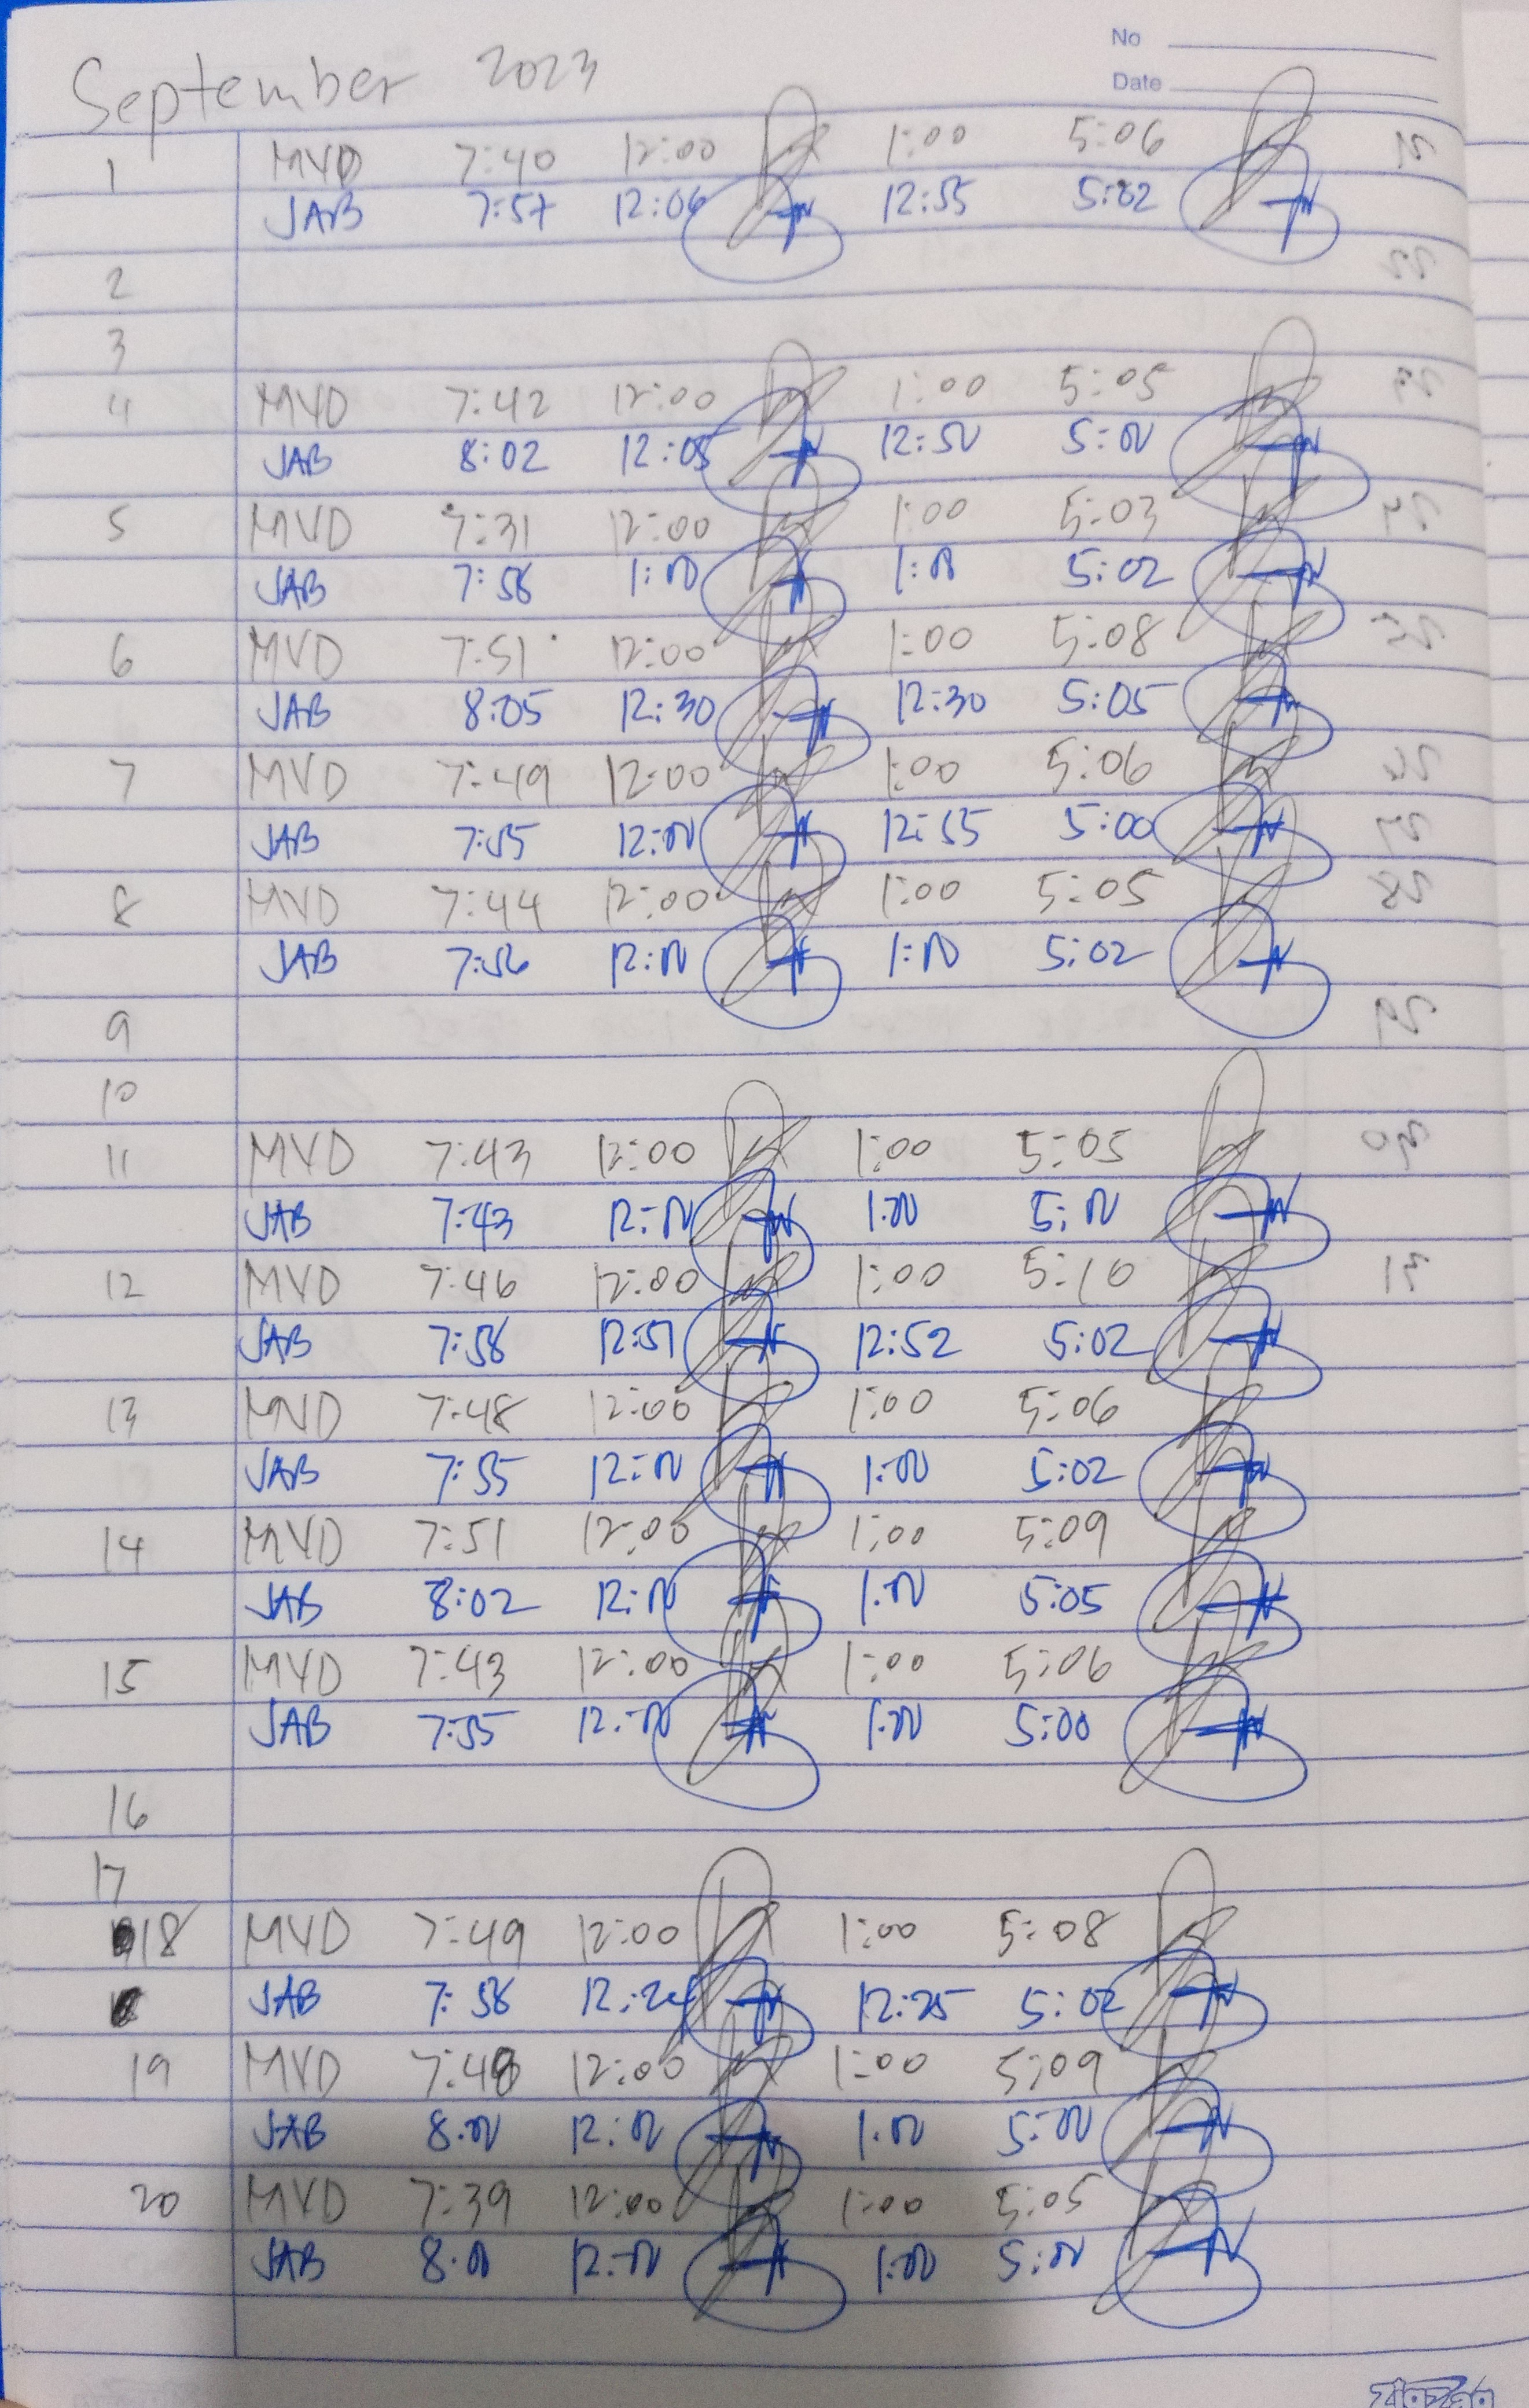 No
Date
September 2023
1 MVD 7:40 12:00 1:00 5:06
JAB 7:57 12:06 12:55 5:02
2
3
4 MVD 7:42 12:00 1:00 5:05
JAB 8:02 12:05 12:50 5:00
5 MVD 7:31 12:00 1:00 5:03
JAB 7:58 1:00 1:00 5:02
6 MVD 7:51 12:00 1:00 5:08
JAB 8:05 12:30 12:30 5:05
7 MVD 7:49 12:00 1:00 5:06
JAB 7:55 12:00 12:55 5:00
8 MVD 7:44 12:00 1:00 5:05
JAB 7:56 12:00 1:00 5:02
9
10
11 MVD 7:43 12:00 1:00 5:05
JAB 7:43 12:00 1:00 5:00
12 MVD 7:46 12:00 1:00 5:10
JAB 7:58 12:51 12:52 5:02
13 MVD 7:48 12:00 1:00 5:06
JAB 7:55 12:00 1:00 5:02
14 MVD 7:51 12:00 1:00 5:09
JAB 8:02 12:00 1:00 5:05
15 MVD 7:43 12:00 1:00 5:06
JAB 7:55 12:00 1:00 5:00
16
17
18 MVD 7:49 12:00 1:00 5:08
JAB 7:58 12:25 5:02
19 MVD 7:48 12:00 1:00 5:09
JAB 8:00 12:00 1:00 5:00
20 MVD 7:39 12:00 1:00 5:05
JAB 8:00 12:00 1:00 5:00
ZigZag